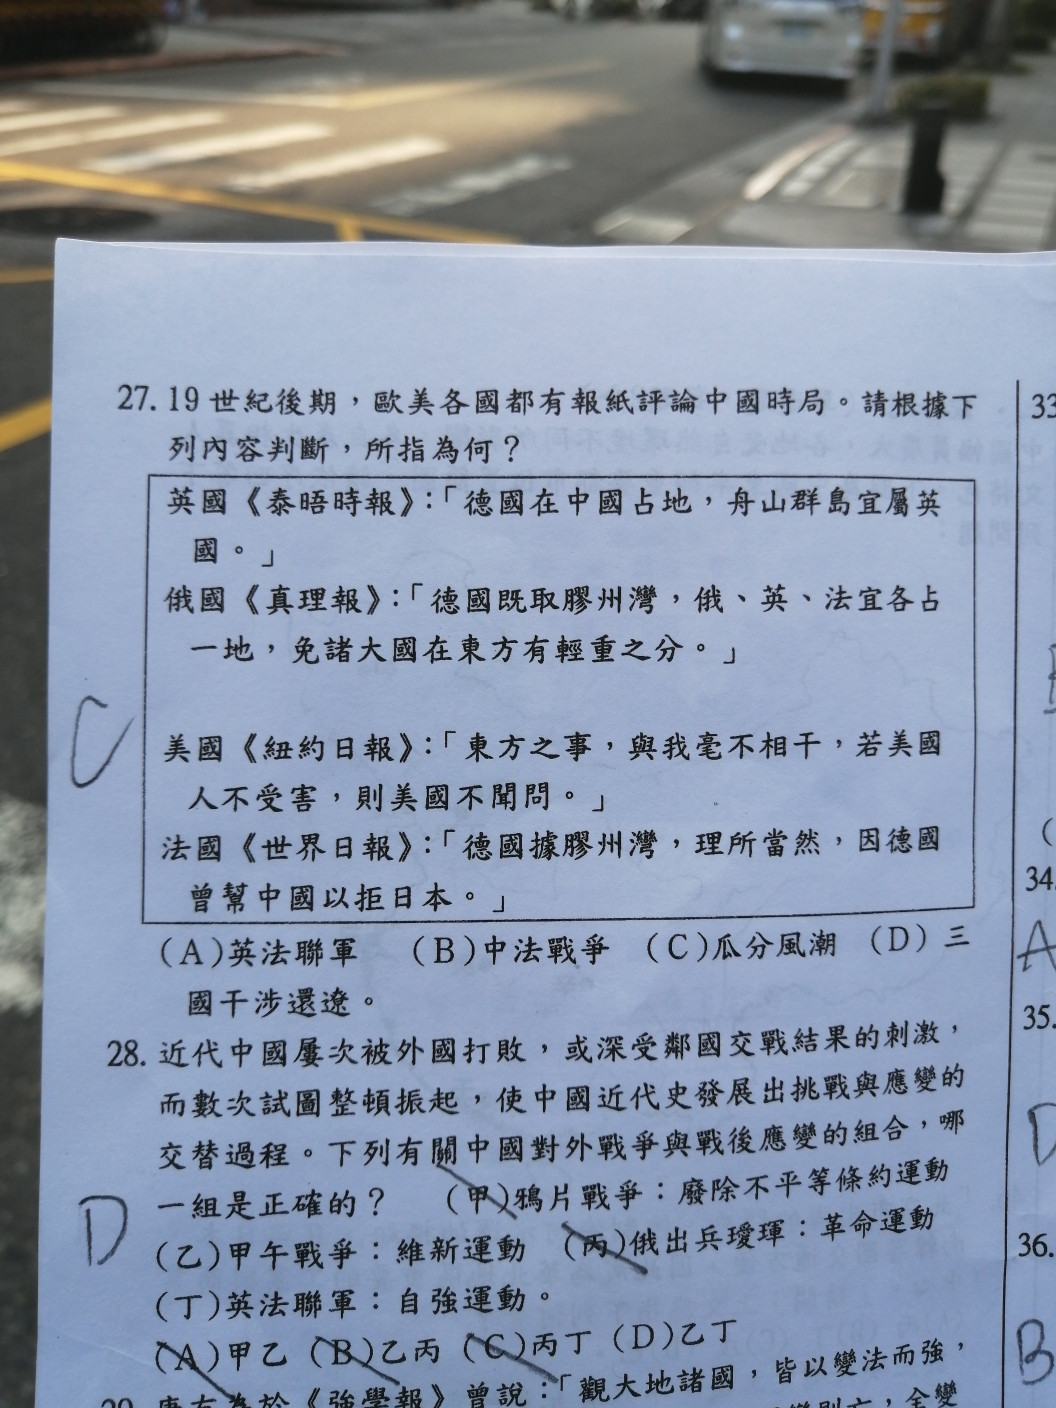 27. 19世紀後期，歐美各國都有報紙評論中國時局。請根據下
列內容判斷，所指為何？
英國《泰晤時報》：「德國在中國占地，舟山群島宜屬英
國。」
俄國《真理報》：「德國既取膠州灣，俄、英、法宜各占
一地，免諸大國在東方有輕重之分。」
美國《紐約日報》：「東方之事，與我毫不相干，若美國
人不受害，則美國不聞問。」
法國《世界日報》：「德國據膠州灣，理所當然，因德國
曾幫中國以拒日本。」
C
(A)英法聯軍 (B)中法戰爭 (C)瓜分風潮 (D)三
國干涉還遼。
28. 近代中國屢次被外國打敗，或深受鄰國交戰結果的刺激，
而數次試圖整頓振起，使中國近代史發展出挑戰與應變的
交替過程。下列有關中國對外戰爭與戰後應變的組合，哪
一組是正確的？ (甲)鴉片戰爭：廢除不平等條約運動
D
(乙)甲午戰爭：維新運動 (丙)俄出兵璦琿：革命運動
(丁)英法聯軍：自強運動。
(A)甲乙 (B)乙丙 (C)丙丁 (D)乙丁
29. 康有為於《強學報》曾說：「觀大地諸國，皆以變法而強，
全變
33
34.
A
35.
D
36.
B